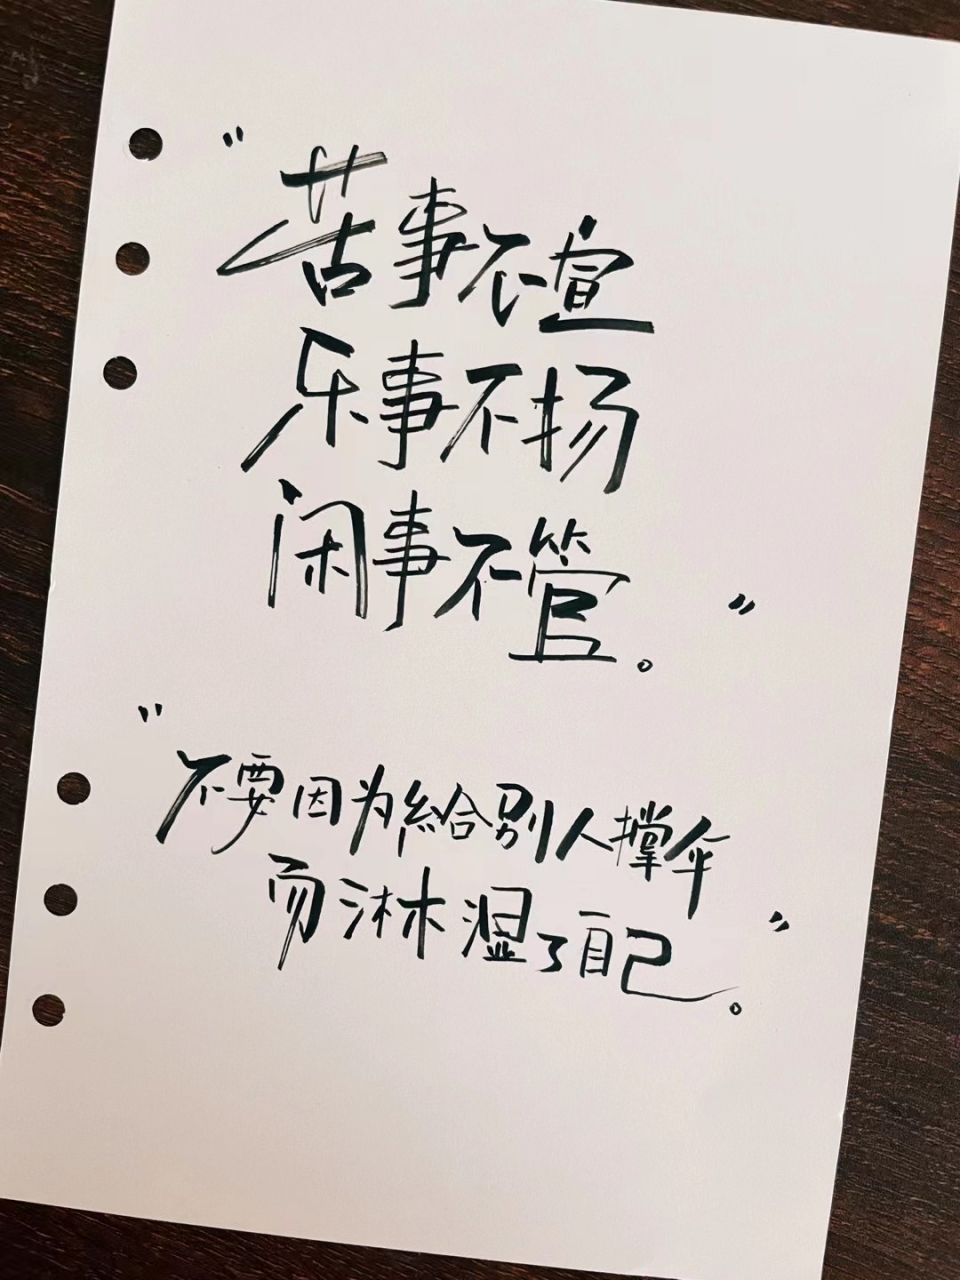 "苦事不宣
乐事不扬
闲事不管。"
"不要因为給别人撑伞
而淋湿了自己。"